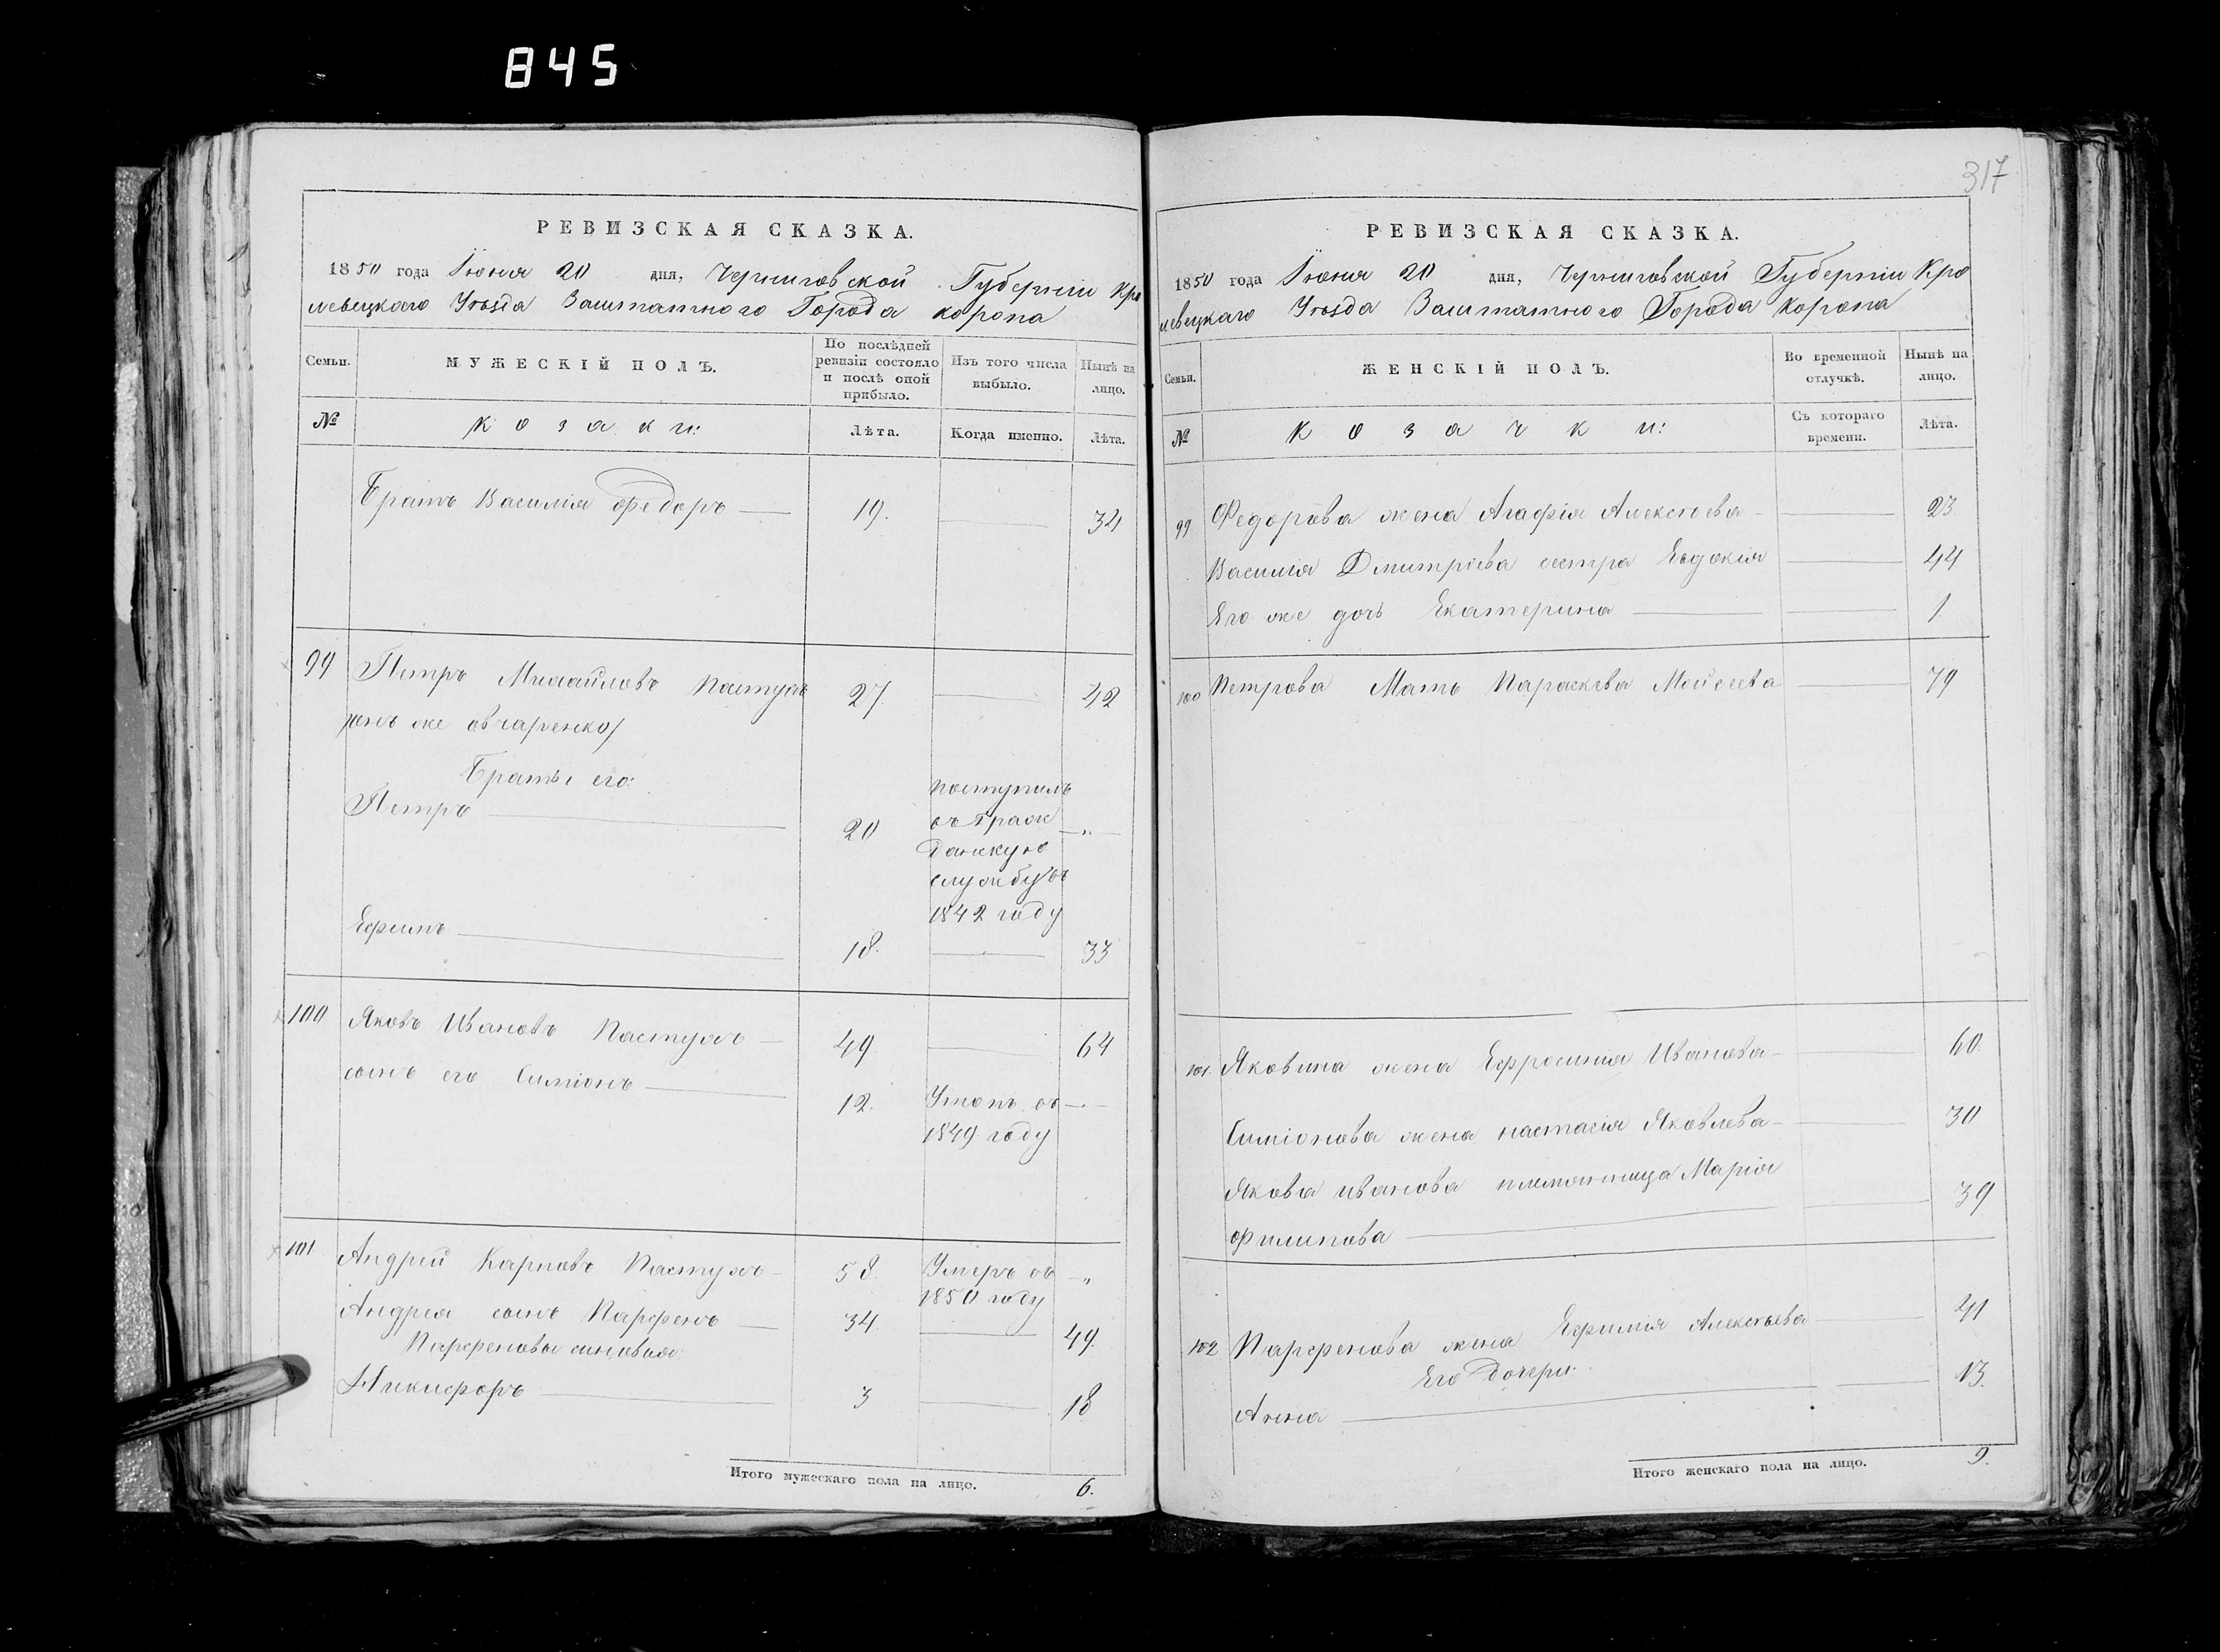 845
РЕВИЗСКАЯ СКАЗКА.
1850 года Июня 20 дня, Черниговской Губернiи Кро
левецкаго Уѣзда Заштатного Города Коропа
Семьи.
МУЖЕСКІЙ ПОЛЪ.
По послѣдней ревизіи состояло и послѣ оной прибыло.
Изъ того числа выбыло.
Нынѣ на лицо.
№
Козаки:
Лѣта.
Когда именно.
Лѣта.
Братъ Василія Федоръ 19. 34
99 Петръ Михайловъ Пастухъ 27. 42
/онъ же овчаренко/
Братья его:
Петръ 20 поступилъ
въ граж
данскую
службу въ
1842 году
Ефимъ 18. 33
100 Яковъ Ивановъ Пастухъ 49 64
сынъ его Симіонъ 12. Утопъ въ
1849 году
101 Андрій Карповъ Пастухъ 58. Умеръ въ
1850 году
Андрея сынъ Парфенъ 34 49.
Парфеновы сыновья:
Никифоръ 3 18
Итого мужескаго пола на лицо. 6.
317
РЕВИЗСКАЯ СКАЗКА.
1850 года Июня 20 дня, Черниговской Губерніи Кро
левецкаго Уѣзда Заштатного Города Коропа
Семьи.
ЖЕНСКІЙ ПОЛЪ.
Во временной отлучкѣ.
Нынѣ на лицо.
№
Козачки:
Съ котораго времени.
Лѣта.
99 Федорова жена Агафія Алексѣева 23
Василія Дмитріева сестра Евдокія 44
Его же дочь Екатерина 1.
100 Петрова Мать Параскева Мойсеева 79
101. Яковина жена Ефросинія Иванова 60.
Симіонова жена настасія Яковлева 30
Якова иванова племянница Марія
Филипова 39
102 Парфенова жена Ефимія Алексѣева 41
Его Дочери:
Анна 13.
Итого женскаго пола на лицо. 9.